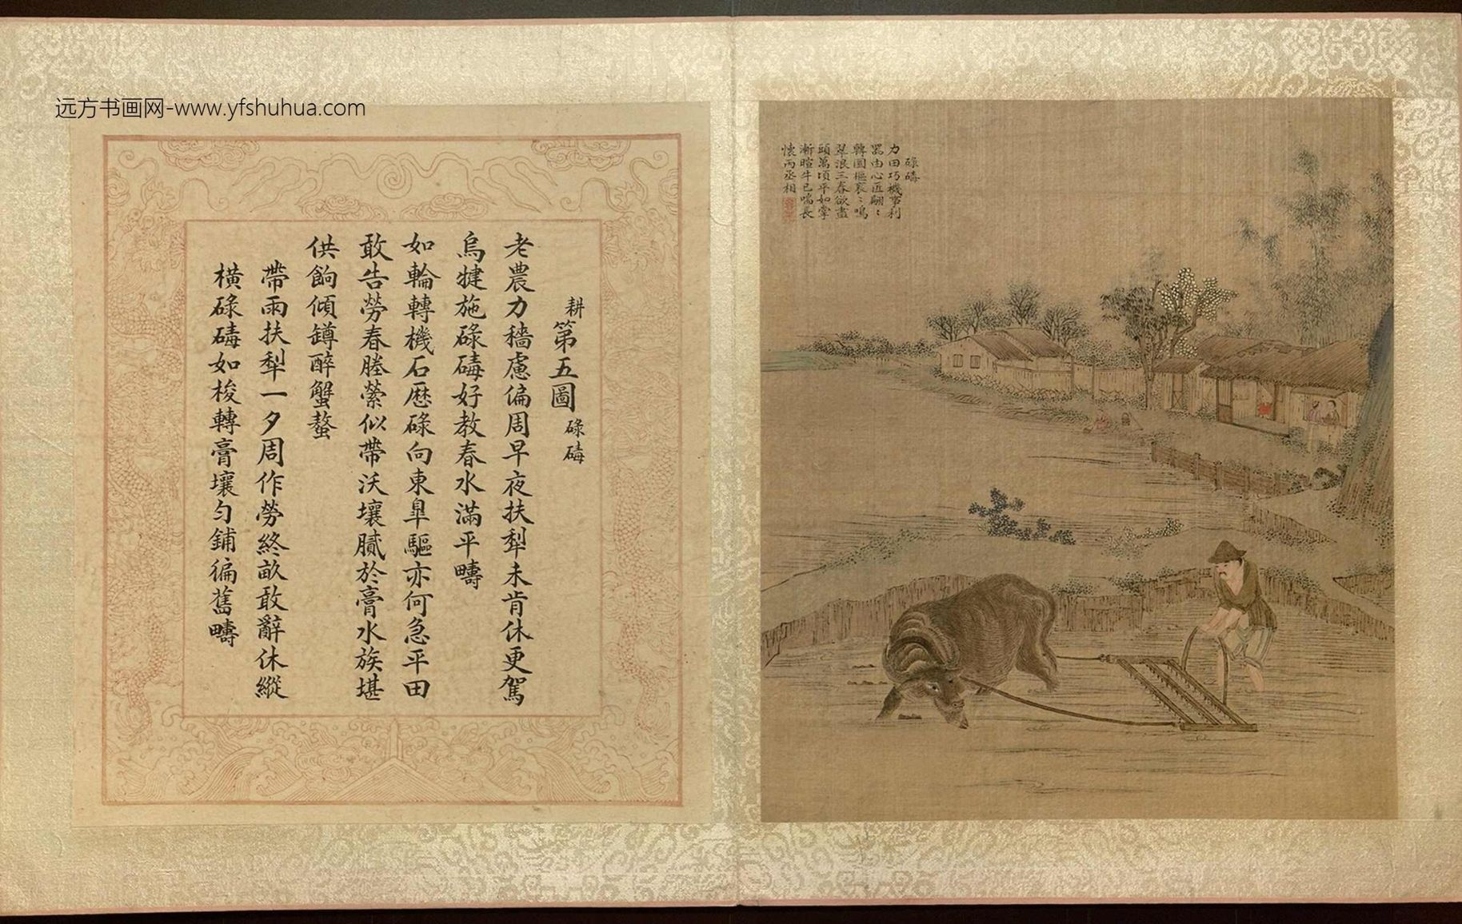 远方书画网-www.yfshuhua.com
碌碡
力田巧機事利
器由心匠翩〻
轉圜樞袞〻鳴
翠浪三春欲盡
頭萬頃平如掌
漸暄牛已喘長
懷丙丞相
耕第五圖碌碡
老農力穡慮偏周早夜扶犁未肯休更駕
烏犍施碌碡好教春水滿平疇
如輪轉機石歷碌向東皐驅亦何急平田
敢告勞春塍縈似帶沃壤膩於膏水族堪
供餉傾罇醉蟹螯
帶雨扶犁一夕周作勞終畝敢辭休縱
橫碌碡如梭轉膏壤勻鋪徧舊疇